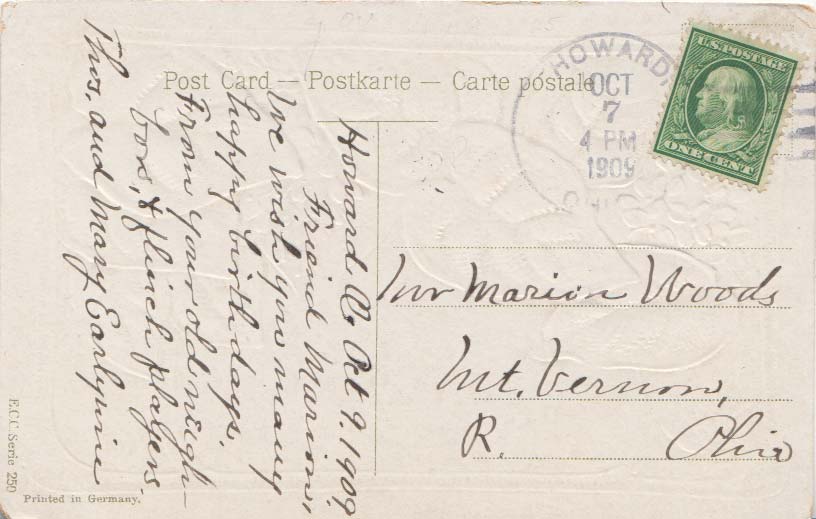 Post Card — Postkarte — Carte postale
HOWARD
OCT
7
4 PM
1909
OHIO
U.S. POSTAGE
ONE CENT
Howard O. Oct 7. 1909.
Friend Marion,
We wish you many
happy birthdays.
From your old neigh-
bors, & flinch players.
Thos. and Mary Earlywine
Mr Marion Woods
Mt. Vernon,
R. Ohio
E.C.C. Serie 250
Printed in Germany.